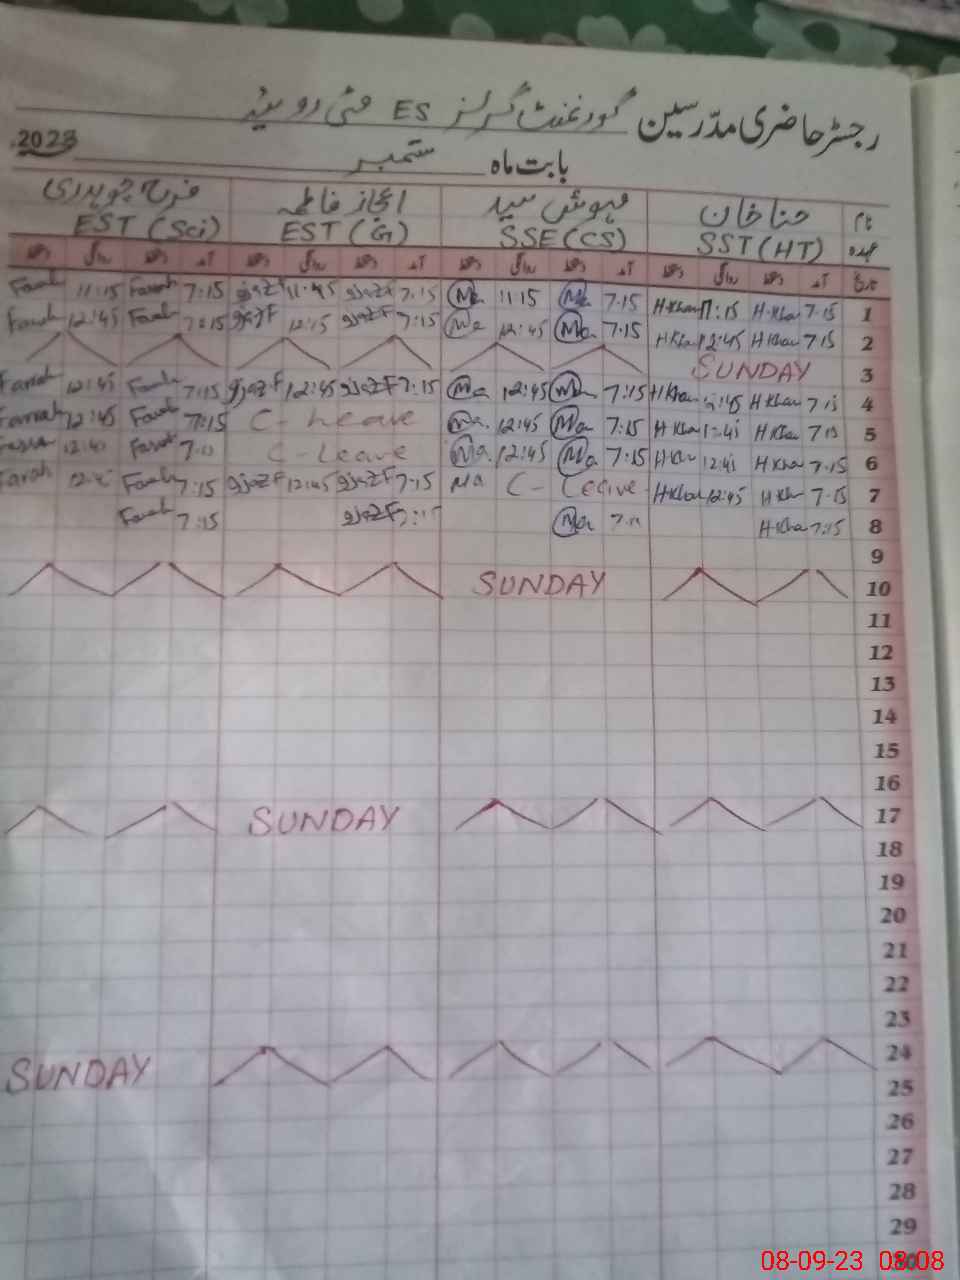 رجسٹر حاضری مدرسین گورنمنٹ گرلز ES
بابت ماہ ستمبر 2023
نام حنا خان مہوش سید فاطمہ فرح چوہدری
عہدہ SST (HT) SSE (CS) EST (G) EST (Sci)
تاریخ آمد دستخط روانگی دستخط آمد دستخط روانگی دستخط آمد دستخط روانگی دستخط آمد دستخط روانگی دستخط
1 7:15 H Khan :15 H Khan 7:15 Ma 11:15 Ma 7:15 ijazF 11:45 ijazF 7:15 Farah 11:15 Farah
2 7:15 H Khan 12:45 H Khan 7:15 Ma 12:45 Ma 7:15 ijazF ijazF 7:15 Farah 12:45 Farah
3 SUNDAY
4 7:15 H Khan :45 H Khan 7:15 Ma 12:45 Ma 7:15 ijazF 12:45 ijazF 7:15 Farah 12:45 Farah
5 7:15 H Khan H Khan 7:15 Ma 12:45 Ma C- Leave 7:15 Farah 12:45 Farrah
6 7:15 H Kha 12:45 H Kh 7:15 Ma 12:45 Ma C- Leave Farah Farah
7 7:15 H Kh 12:45 H Khan C- Leave Ma 7:15 ijazF 12:45 ijazF 7:15 Farah Farah
8 7:15 H Kha Ma ijazF 7:15 Farah
9
10 SUNDAY
11
12
13
14
15
16
17 SUNDAY
18
19
20
21
22
23
24 SUNDAY
25
26
27
28
29
30
08-09-23 08:08